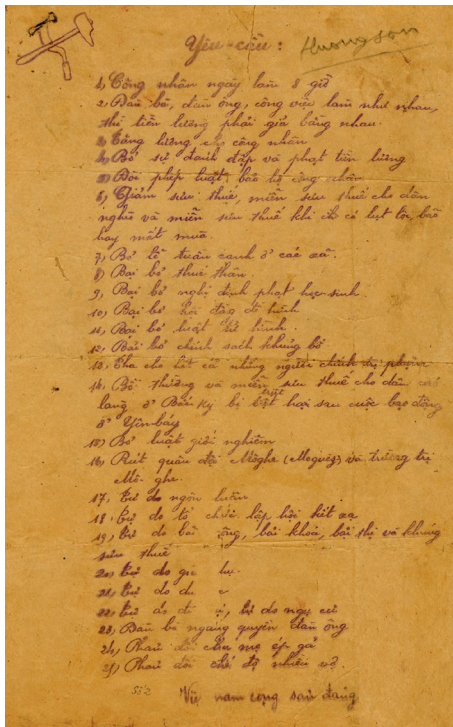 Yêu-cầu :
Hương sơn
1, Công nhân ngày làm 8 giờ
2, Đàn bà, đàn ông, công việc làm như nhau,
thì tiền lương phải giả bằng nhau.
3, Tăng lương cho công nhân
4, Bỏ sự đánh đập và phạt tiền lương
5, Đòi phép luật bảo hộ công nhân
6, Giảm sưu thuế, miễn sưu thuế cho dân
nghèo và miễn sưu thuế khi có lụt lội, bão
hay mất mùa.
7, Bỏ lễ tuần canh ở các xã.
8, Bại bỏ thuế thân.
9, Bại bỏ nghị định phạt học-sinh
10, Bại bỏ hội đồng đề hình
11, Bại bỏ luật tử hình.
12, Bãi bỏ chính sách khủng bố
13, Tha cho hết cả những người chính trị phạm
14, Bồi thường và miễn sưu thuế cho dân các
làng ở Bắc kỳ bị thiệt hại sau cuộc bạo động
ở Yên báy
15, Bỏ luật giới nghiêm
16, Rút quân đội Môghe (Mogués) và trương trị
Mô-ghe.
17, Tự do ngôn luận
18, Tự do tổ chức lập hội kết xã
19, Tự do bãi công, bãi khóa, bãi thị và kháng
sưu thuế
20, Tự do
21, Tự do du
22, Tự do đi, tự do ngụ cư
23, Đàn bà ngang quyền đàn ông
24, Phản đối cha mẹ ép gả
25, Phản đối chế độ nhiều vợ.
552
Việt nam cộng sản đảng